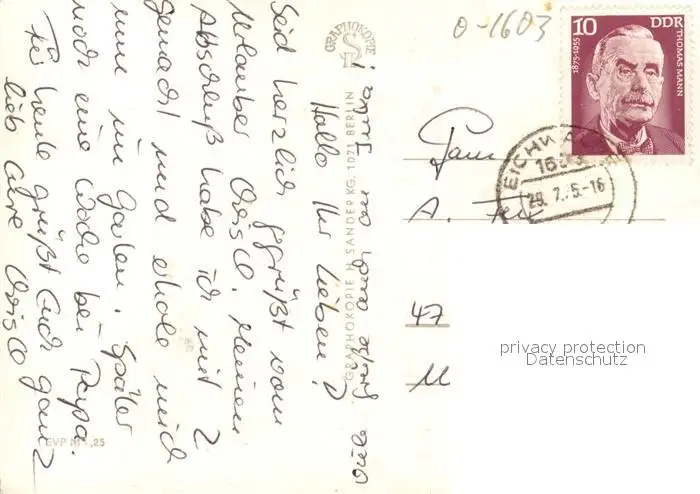 Hallo Ihr Lieben!
Seid herzlich gegrüßt vom
Urlauber Heinen
Abschluß habe ich mit 2
gemacht und erhole mich
nun im Garten. Später
noch eine Woche bei Papa.
Für heute grüßt Euch ganz
lieb Eure
viele Grüße
GRAPHOKOPIE
GRAPHOKOPIE H. SANDER KG. 1071 BERLIN
EVP M -,25
0-1603
10 DDR
1875-1955
THOMAS MANN
EICHW
1603
29.7.75.-16
Fam
A.
47
M
privacy protection
Datenschutz